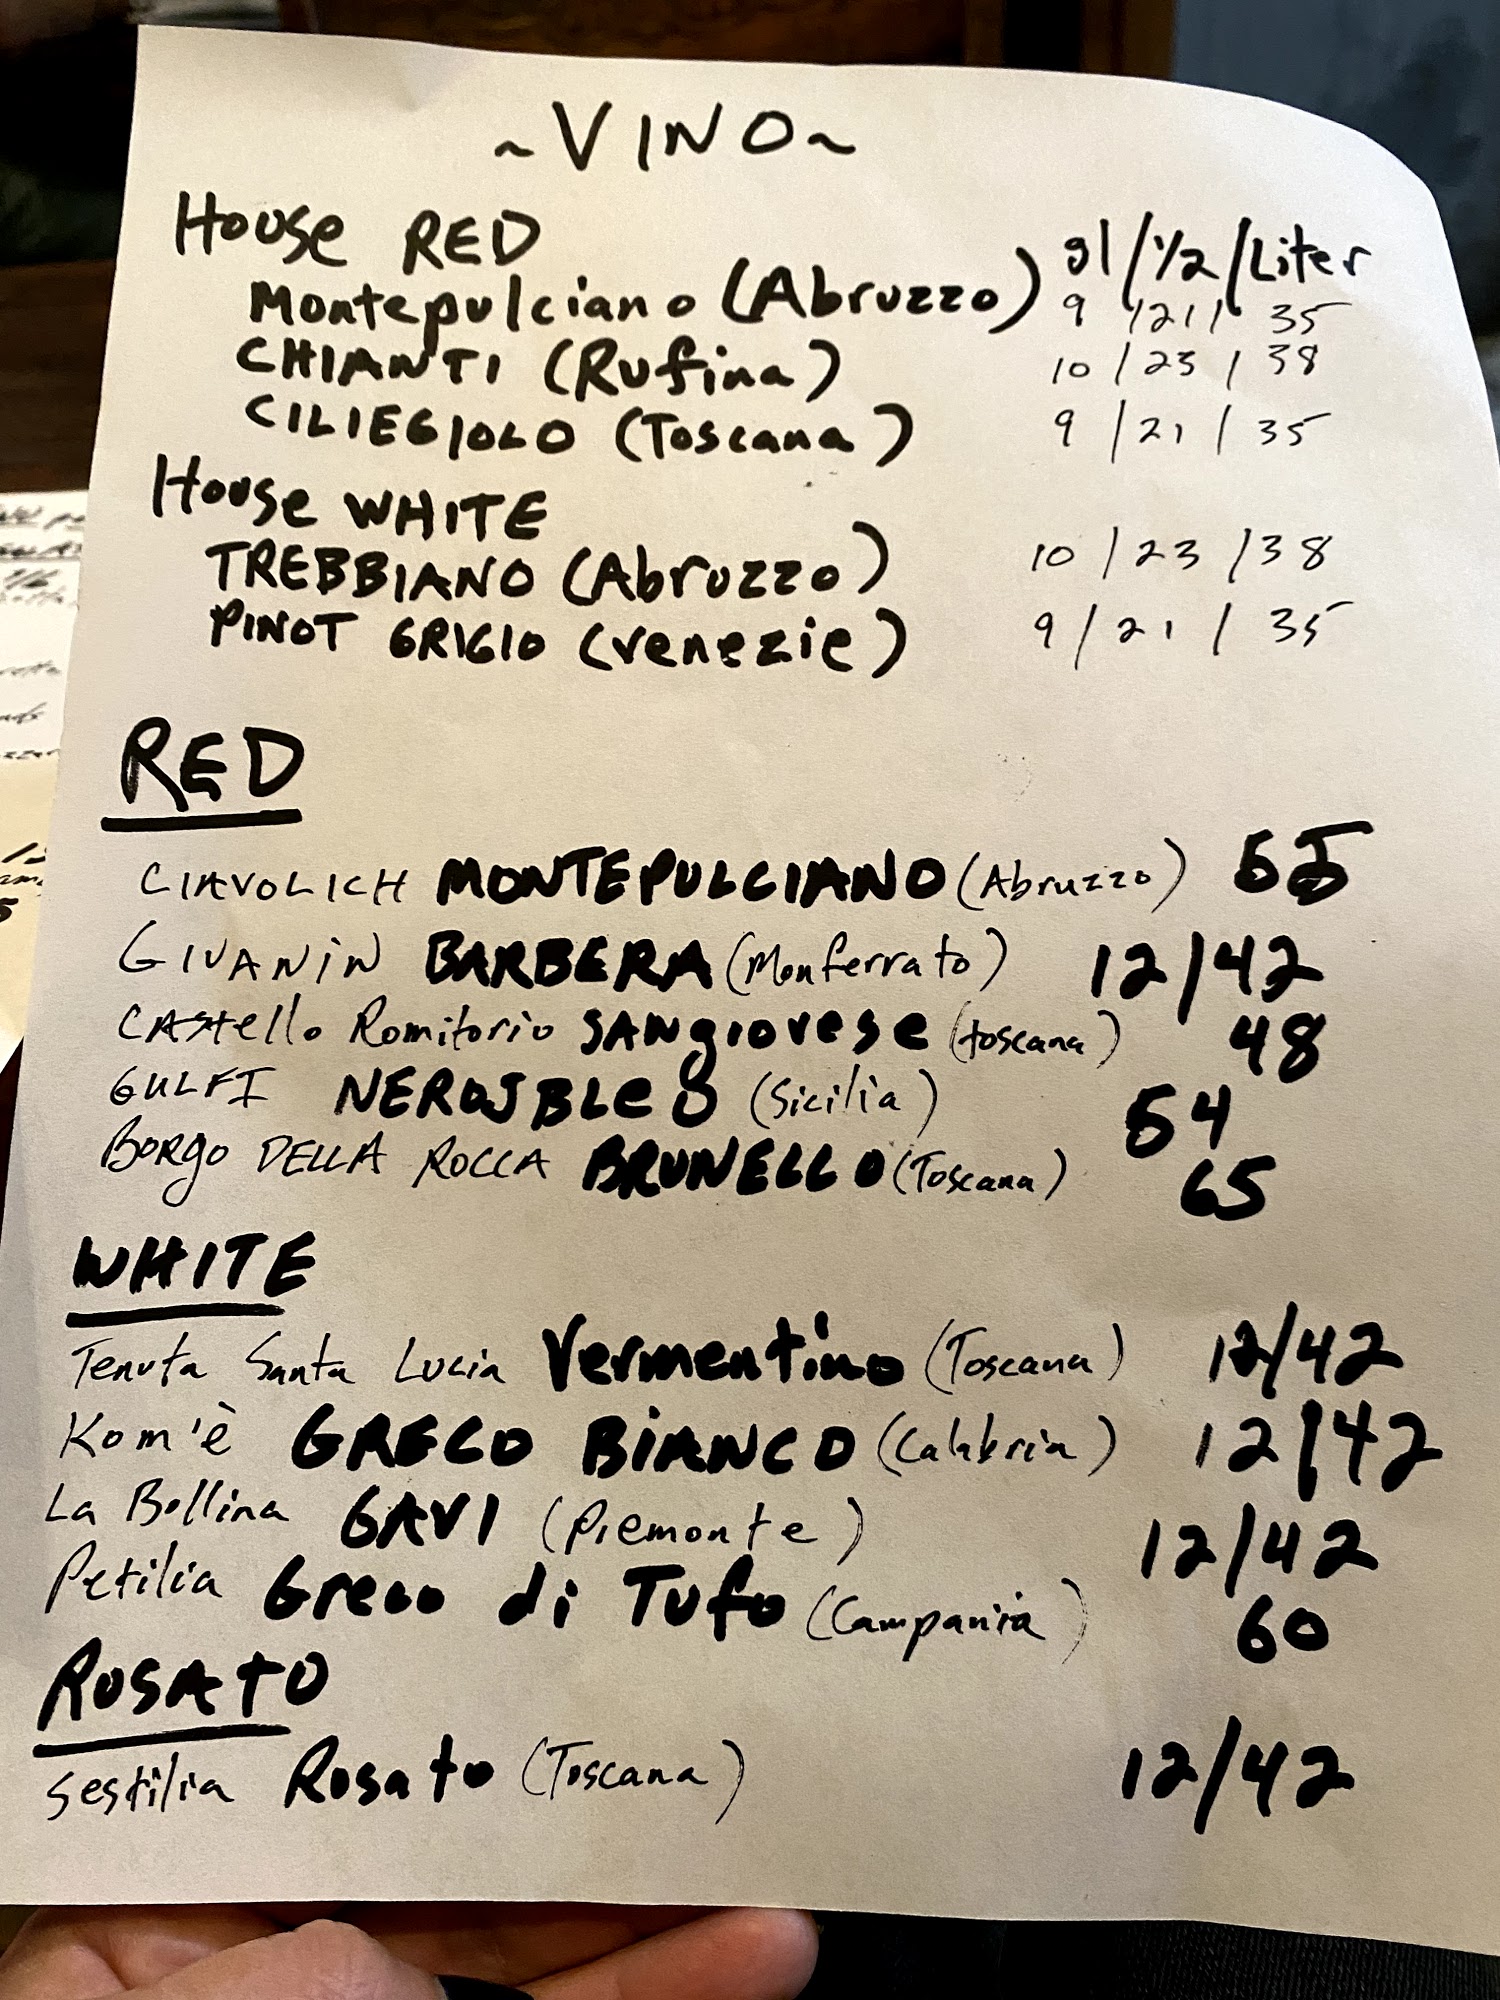 ~VINO~
House RED gl/½/Liter
Montepulciano (Abruzzo) 9 /21/ 35
CHIANTI (Rufina) 10 / 23 / 38
CILIEGIOLO (Toscana) 9 / 21 / 35
House WHITE
TREBBIANO (Abruzzo) 10 / 23 / 38
PINOT GRIGIO (venezie) 9 / 21 / 35
RED
CIAVOLICH MONTEPULCIANO (Abruzzo) 55
GIVANIN BARBERA (Monferrato) 12/42
CAStello Romitorio SANgiovese (toscana) 48
GULFI (Sicilia) 54
BORgo DELLA ROCCA BRUNELLO (Toscana) 65
WHITE
Tenuta Santa Lucia Vermentino (Toscana) 12/42
Kom'è GRECO BiANCO (Calabria) 12/42
La Bollina GAVI (Piemonte) 12/42
Petilia Greco di Tufo (Campania) 60
ROSATO
sestilia Rosato (Toscana) 12/42